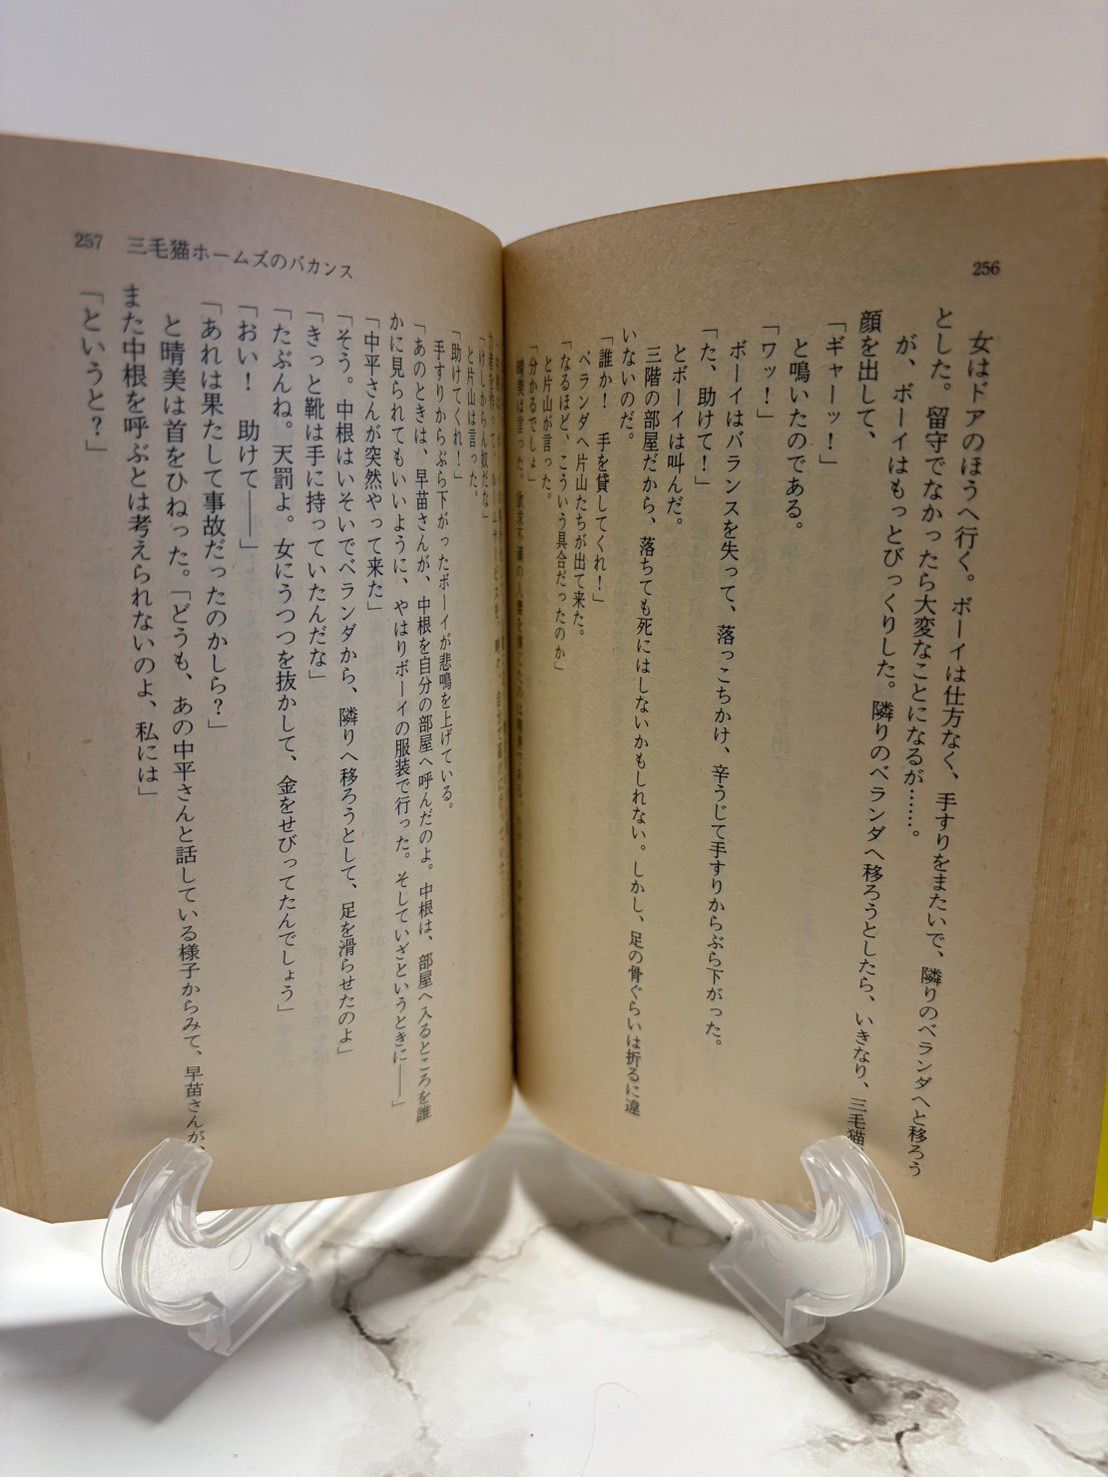 256
女はドアのほうへ行く。ボーイは仕方なく、手すりをまたいで、隣りのベランダへと移ろう
とした。留守でなかったら大変なことになるが……。
が、ボーイはもっとびっくりした。隣りのベランダへ移ろうとしたら、いきなり、三毛猫
顔を出して、
「ギャーッ！」
と鳴いたのである。
「ワッ！」
ボーイはバランスを失って、落っこちかけ、辛うじて手すりからぶら下がった。
「た、助けて！」
とボーイは叫んだ。
三階の部屋だから、落ちても死にはしないかもしれない。しかし、足の骨ぐらいは折るに違
いないのだ。
「誰か！　手を貸してくれ！」
ベランダへ片山たちが出て来た。
「なるほど、こういう具合だったのか」
と片山が言った。
「分かるでしょ」
晴美は言った。
257 三毛猫ホームズのバカンス
「けしからん奴だな」
と片山は言った。
「助けてくれ！」
手すりからぶら下がったボーイが悲鳴を上げている。
「あのときは、早苗さんが、中根を自分の部屋へ呼んだのよ。中根は、部屋へ入るところを誰
かに見られてもいいように、やはりボーイの服装で行った。そしていざというときに――」
「中平さんが突然やって来た」
「そう。中根はいそいでベランダから、隣りへ移ろうとして、足を滑らせたのよ」
「きっと靴は手に持っていたんだな」
「たぶんね。天罰よ。女にうつつを抜かして、金をせびってたんでしょう」
「おい！　助けて――」
「あれは果たして事故だったのかしら？」
と晴美は首をひねった。「どうも、あの中平さんと話している様子からみて、早苗さんが、
また中根を呼ぶとは考えられないのよ、私には」
「というと？」